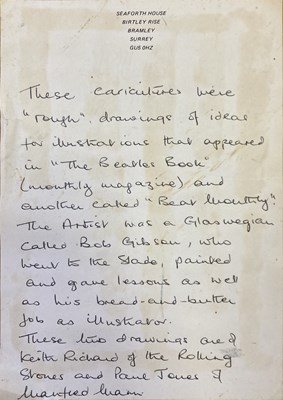 SEAFORTH HOUSE
BIRTLEY RISE
BRAMLEY
SURREY
GU5 0HZ
These caricatures were
"rough" drawings of ideas
for illustrations that appeared
in "The Beatles Book"
(monthly magazine) and
another called "Beat Monthly".
The Artist was a Glaswegian
called Bob Gibson, who
went to the Slade, painted
and gave lessons as well
as his bread-and-butter
job as illustrator.
These two drawings are of
Keith Richard of the Rolling
Stones and Paul Jones of
Manfred Mann.